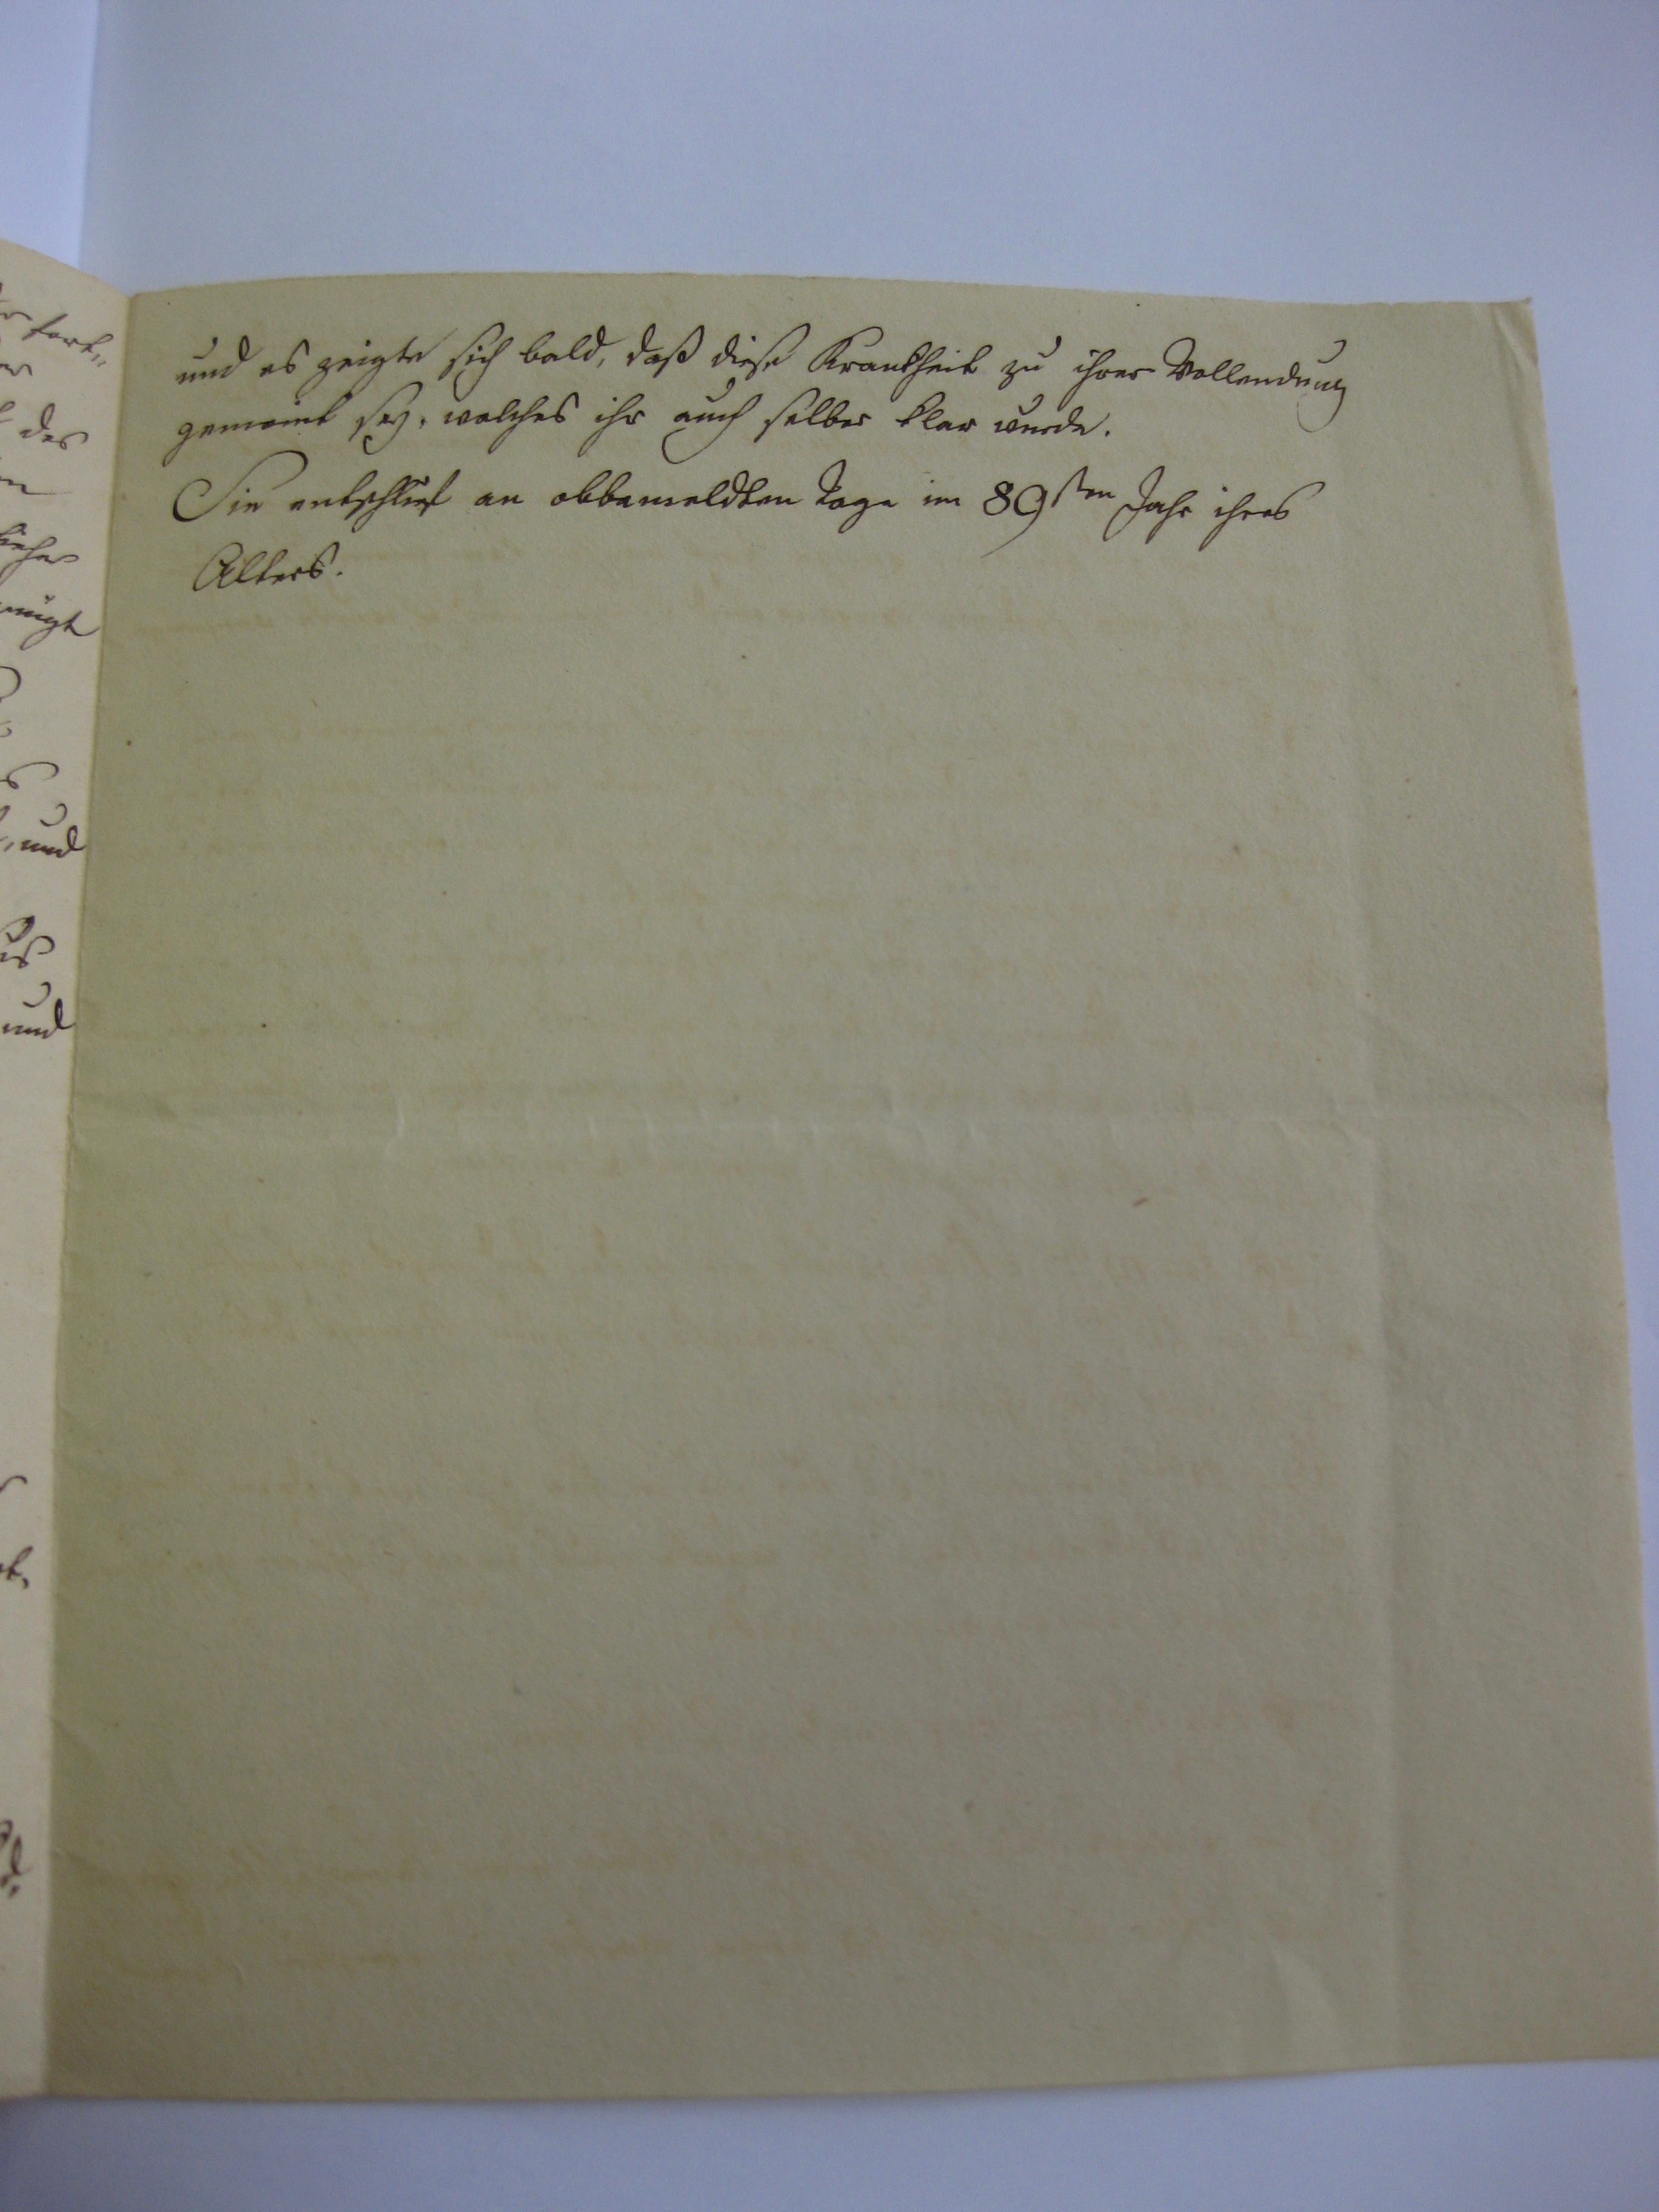 und es zeigte sich bald, daß diese Krankheit zu ihrer Vollendung
gemeint sey, welches ihr auch selber klar wurde.
Sie entschlief an obbemeldten Tage im 89sten Jahr ihres
Alters.
des
und
und